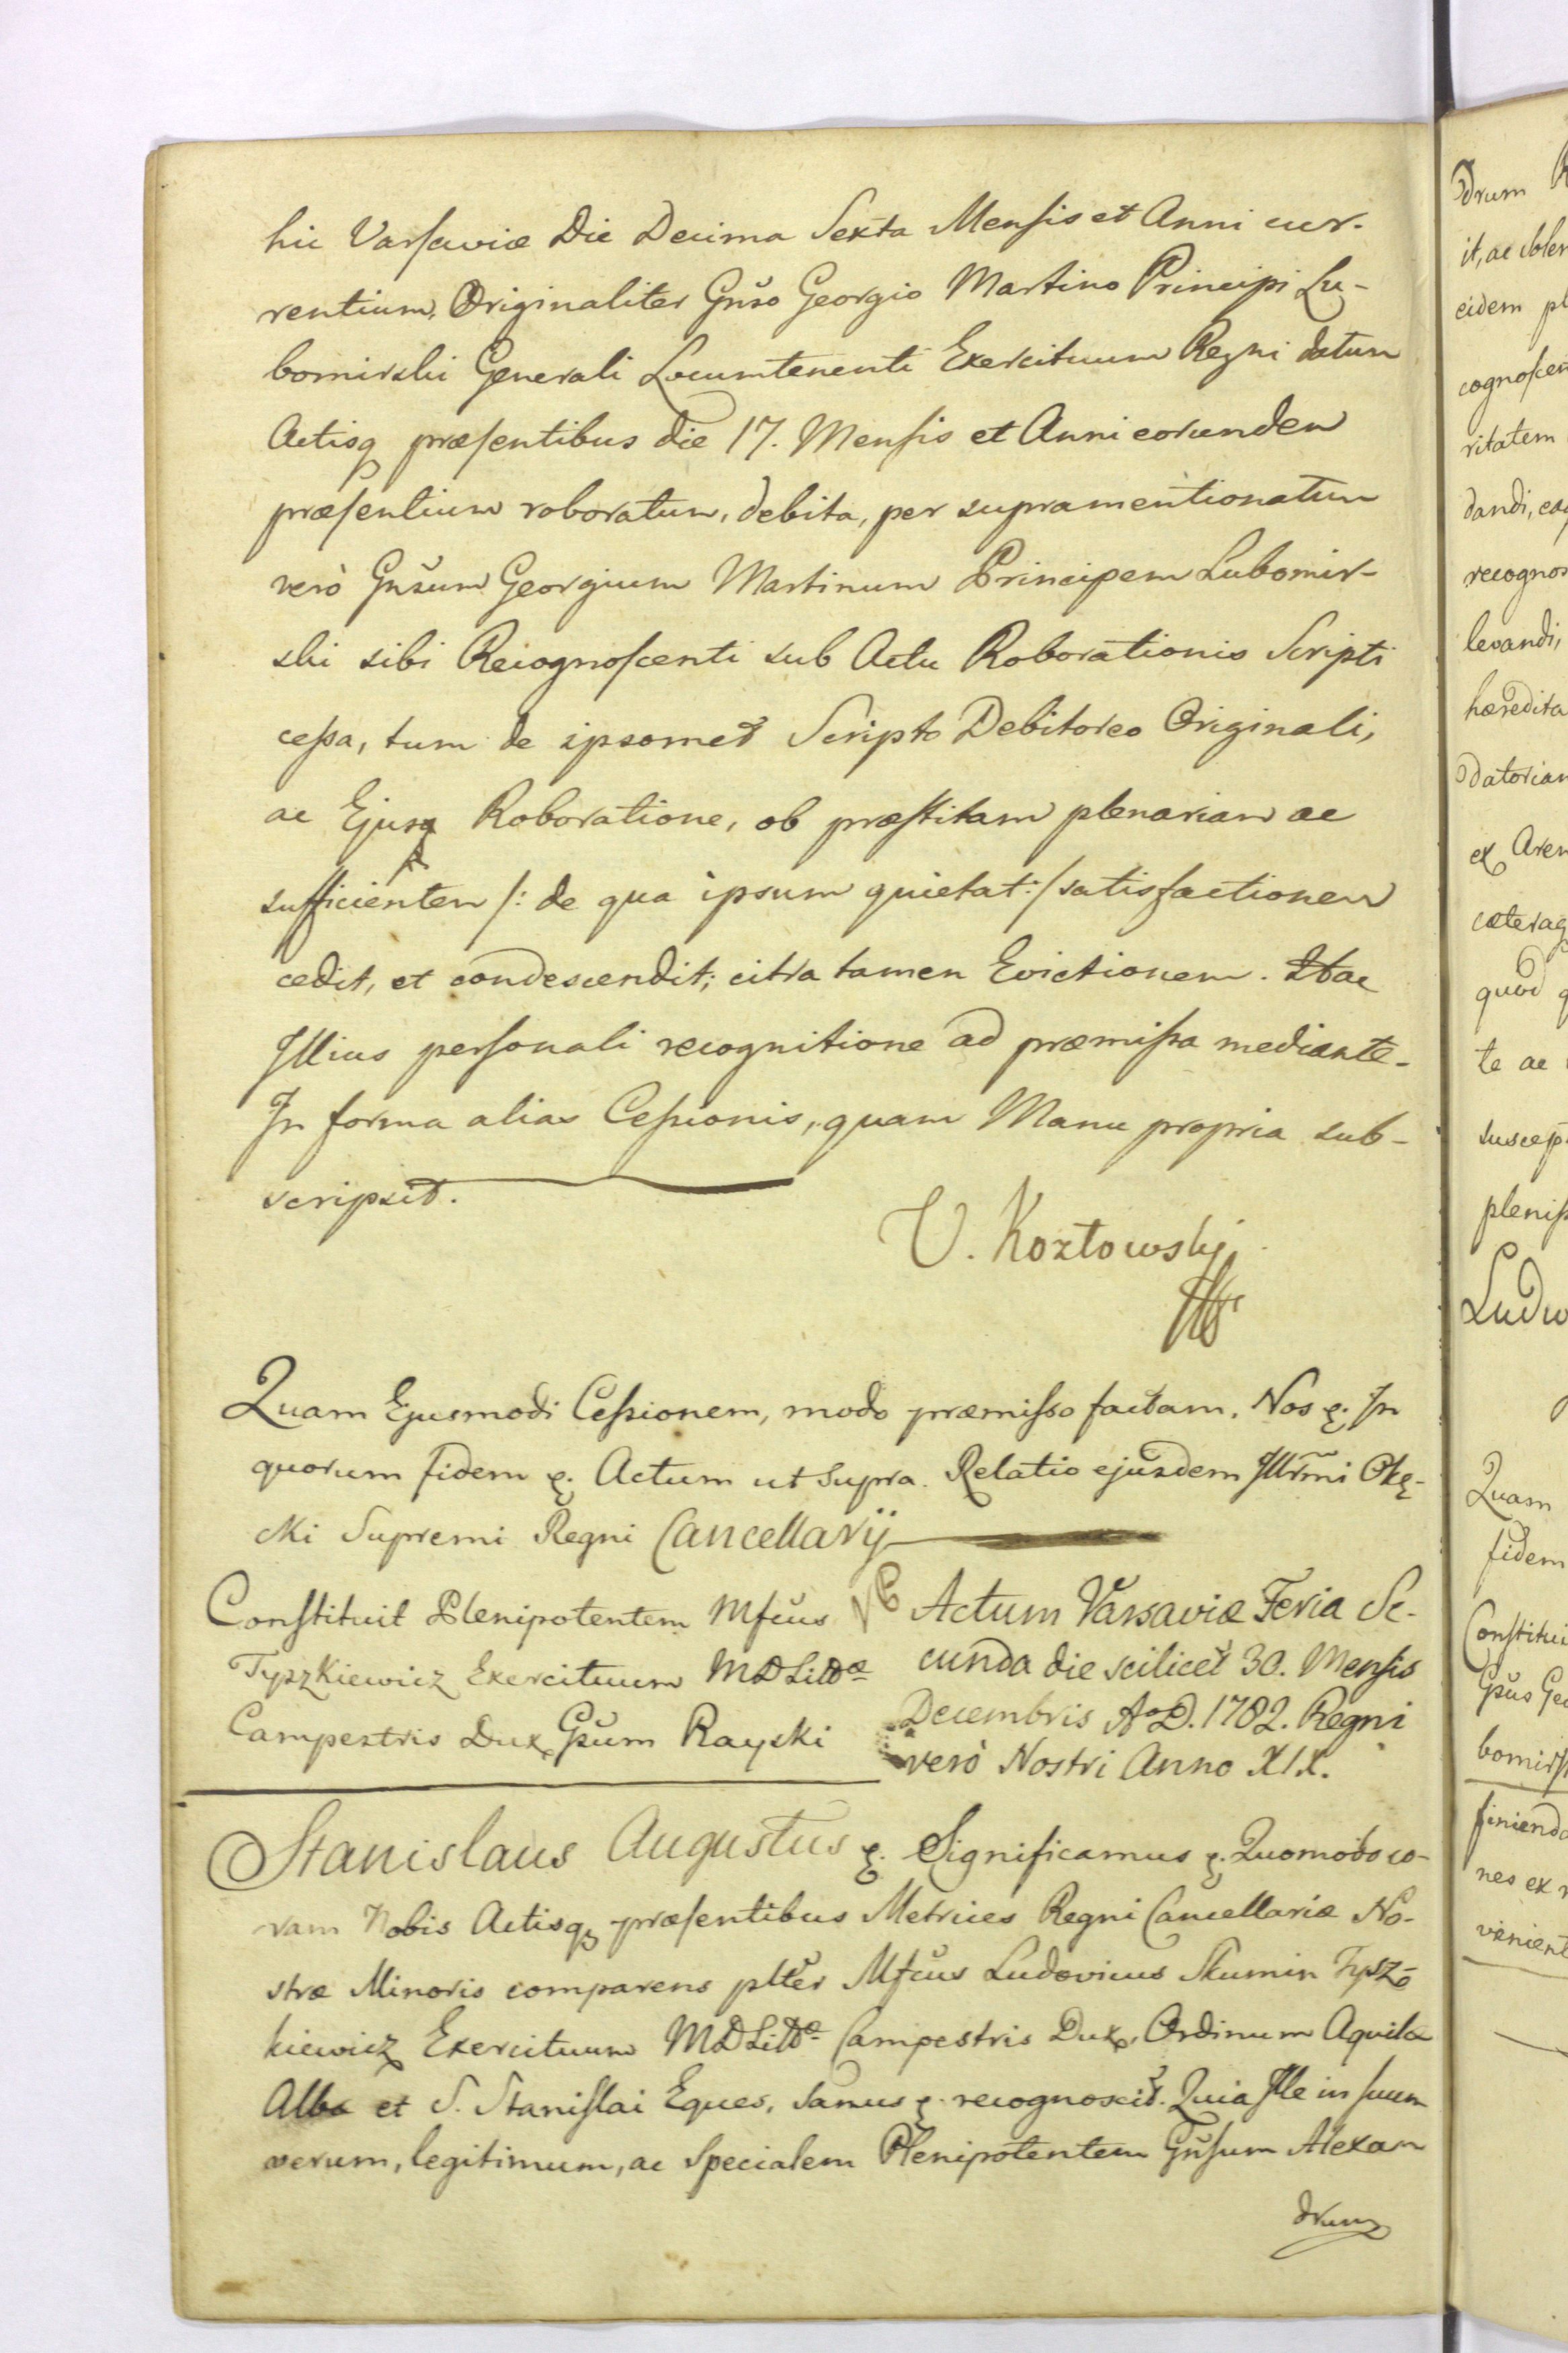 hic Varsaviæ Die Decima Sexta Mensis et Anni cur-
rentium, Originaliter Gnšo Georgio Martino Principi Lu-
bomirski Generali Locumtenenti Exercituum Regni datum
Actisq præsentibus die 17. Mensis et Anni eorundem
præsentium roboratum, debita, per supramentionatum
verò Gnšum Georgium Martinum Principem Lubomir-
ski sibi Recognoscenti sub Actu Roborationis Scripti
cessa, tum de ipsomet Scripto Debitoreo Originali,
ac Ejusq Roboratione, ob præstitam plenariam ac
sufficientem /: de qua ipsum quietat :/ satisfactionem
cedit, et condescendit; citra tamen Evictionem. Hac
Illius personali recognitione ad præmissa mediante.
In forma alias Cessionis, quam Manu propria sub-
scripsit.
V. Kozłowski
Quam Ejusmodi Cessionem, modo præmisso factam, Nos &. In
quorum fidem &. Actum ut supra. Relatio ejusdem Illrm̃i Okę-
cki Supremi Regni Cancellarij
Constituit Plenipotentem Mfcus
Tyszkiewicz Exercituum MDLittæ
Campestris Dux Gsum Rayski
Actum Varsaviæ Feria Se-
cunda die scilicet 30. Mensis
Decembris AoD. 1782. Regni
verò Nostri Anno XIX.
Stanislaus Augustus &. Significamus &. Quomodo co-
ram Nobis Actisq præsentibus Metrices Regni Cancellariæ No-
stræ Minoris comparens plter Mfcus Ludovicus Skumin Tysz-
kiewicz Exercituum MDLittæ Campestris Dux, Ordinum Aquilæ
Albæ et S. Stanislai Eques, sanus &. recognoscit. Quia Ille in suum
verum, legitimum, ac Specialem Plenipotentem Gnsum Alexan
drum
drum
it, ac
eidem
ritatem
dandi,
recognos
levandi,
hæredita
datoriam
ex
quod
te ac
suscept
pleniss
Ludw
Quam
fidem
Constitui
Gsus Geo
bomirsk
finiendo
nes ex
venient